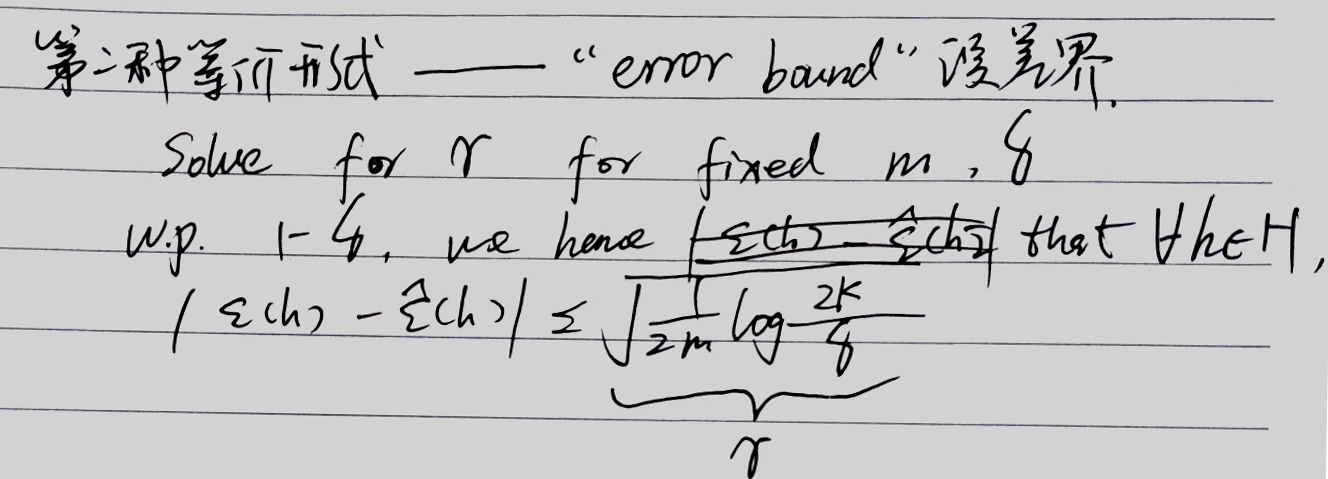 第二种等价形式 —— “error bound” 误差界.
Solve for γ for fixed m, δ
w.p. 1-δ, we have that ∀h∈H,
| ε(h) - ε̂(h) | ≤ √(1/2m log 2k/δ)
γ